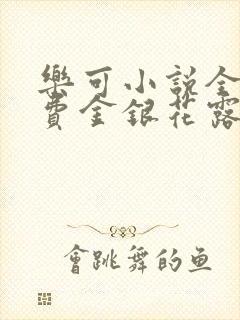 樂可小說全
費金銀花露
會跳舞的鱼